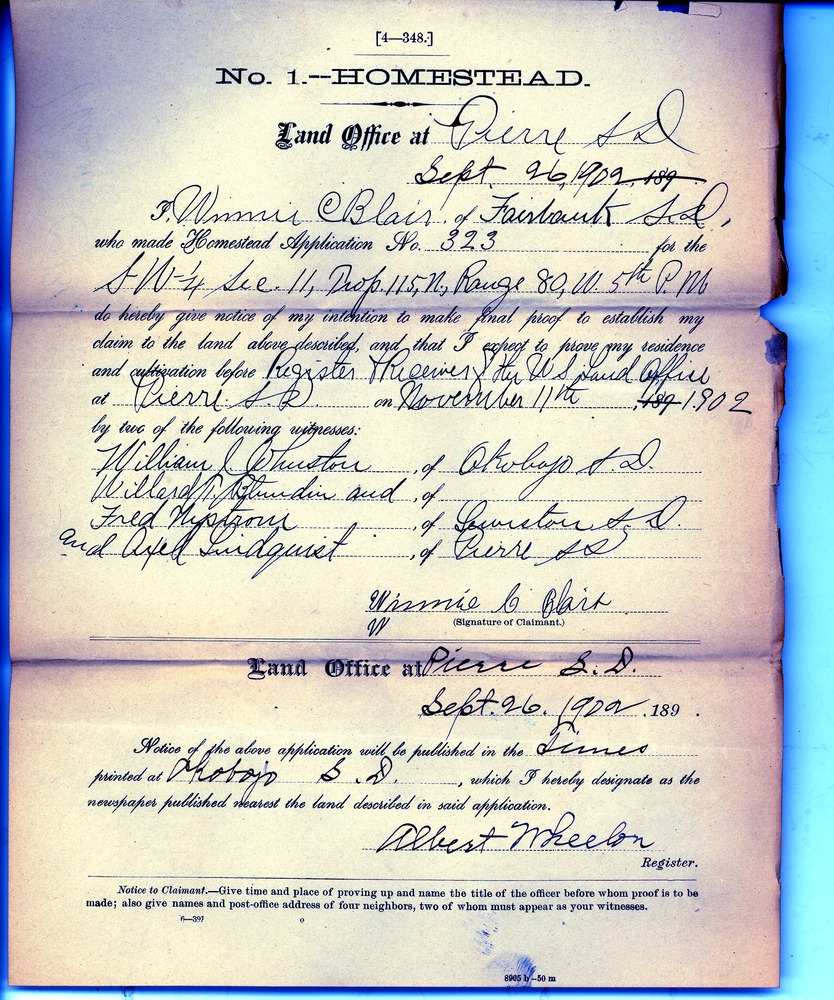 [4—348.]
No. 1.--HOMESTEAD.
Land Office at Pierre S D
Sept. 26, 1902, 189
I, Winnie C Blair of Fairbank S.D,
who made Homestead Application No. 323 for the
S.W 1/4 Sec. 11, Twp. 115, N, Range 80, W. 5th P. M
do hereby give notice of my intention to make final proof to establish my
claim to the land above described, and that I expect to prove my residence
and cultivation before Register & Receiver of the U S Land Office
at Pierre S D on November 11th , 189 1902
by two of the following witnesses:
William J. , of Okobojo S. D.
Willard T. and , of
Fred Nystrom , of Lewiston S. D.
and Axel Lindquist , of Pierre SD
Winnie C Blair
W
(Signature of Claimant.)
Land Office at Pierre S. D.
Sept. 26. 1902 , 189 .
Notice of the above application will be published in the Times
printed at Okobojo S. D. , which I hereby designate as the
newspaper published nearest the land described in said application.
Albert Wheelon
Register.
Notice to Claimant.—Give time and place of proving up and name the title of the officer before whom proof is to be
made; also give names and post-office address of four neighbors, two of whom must appear as your witnesses.
6—391
8965 b—50 m